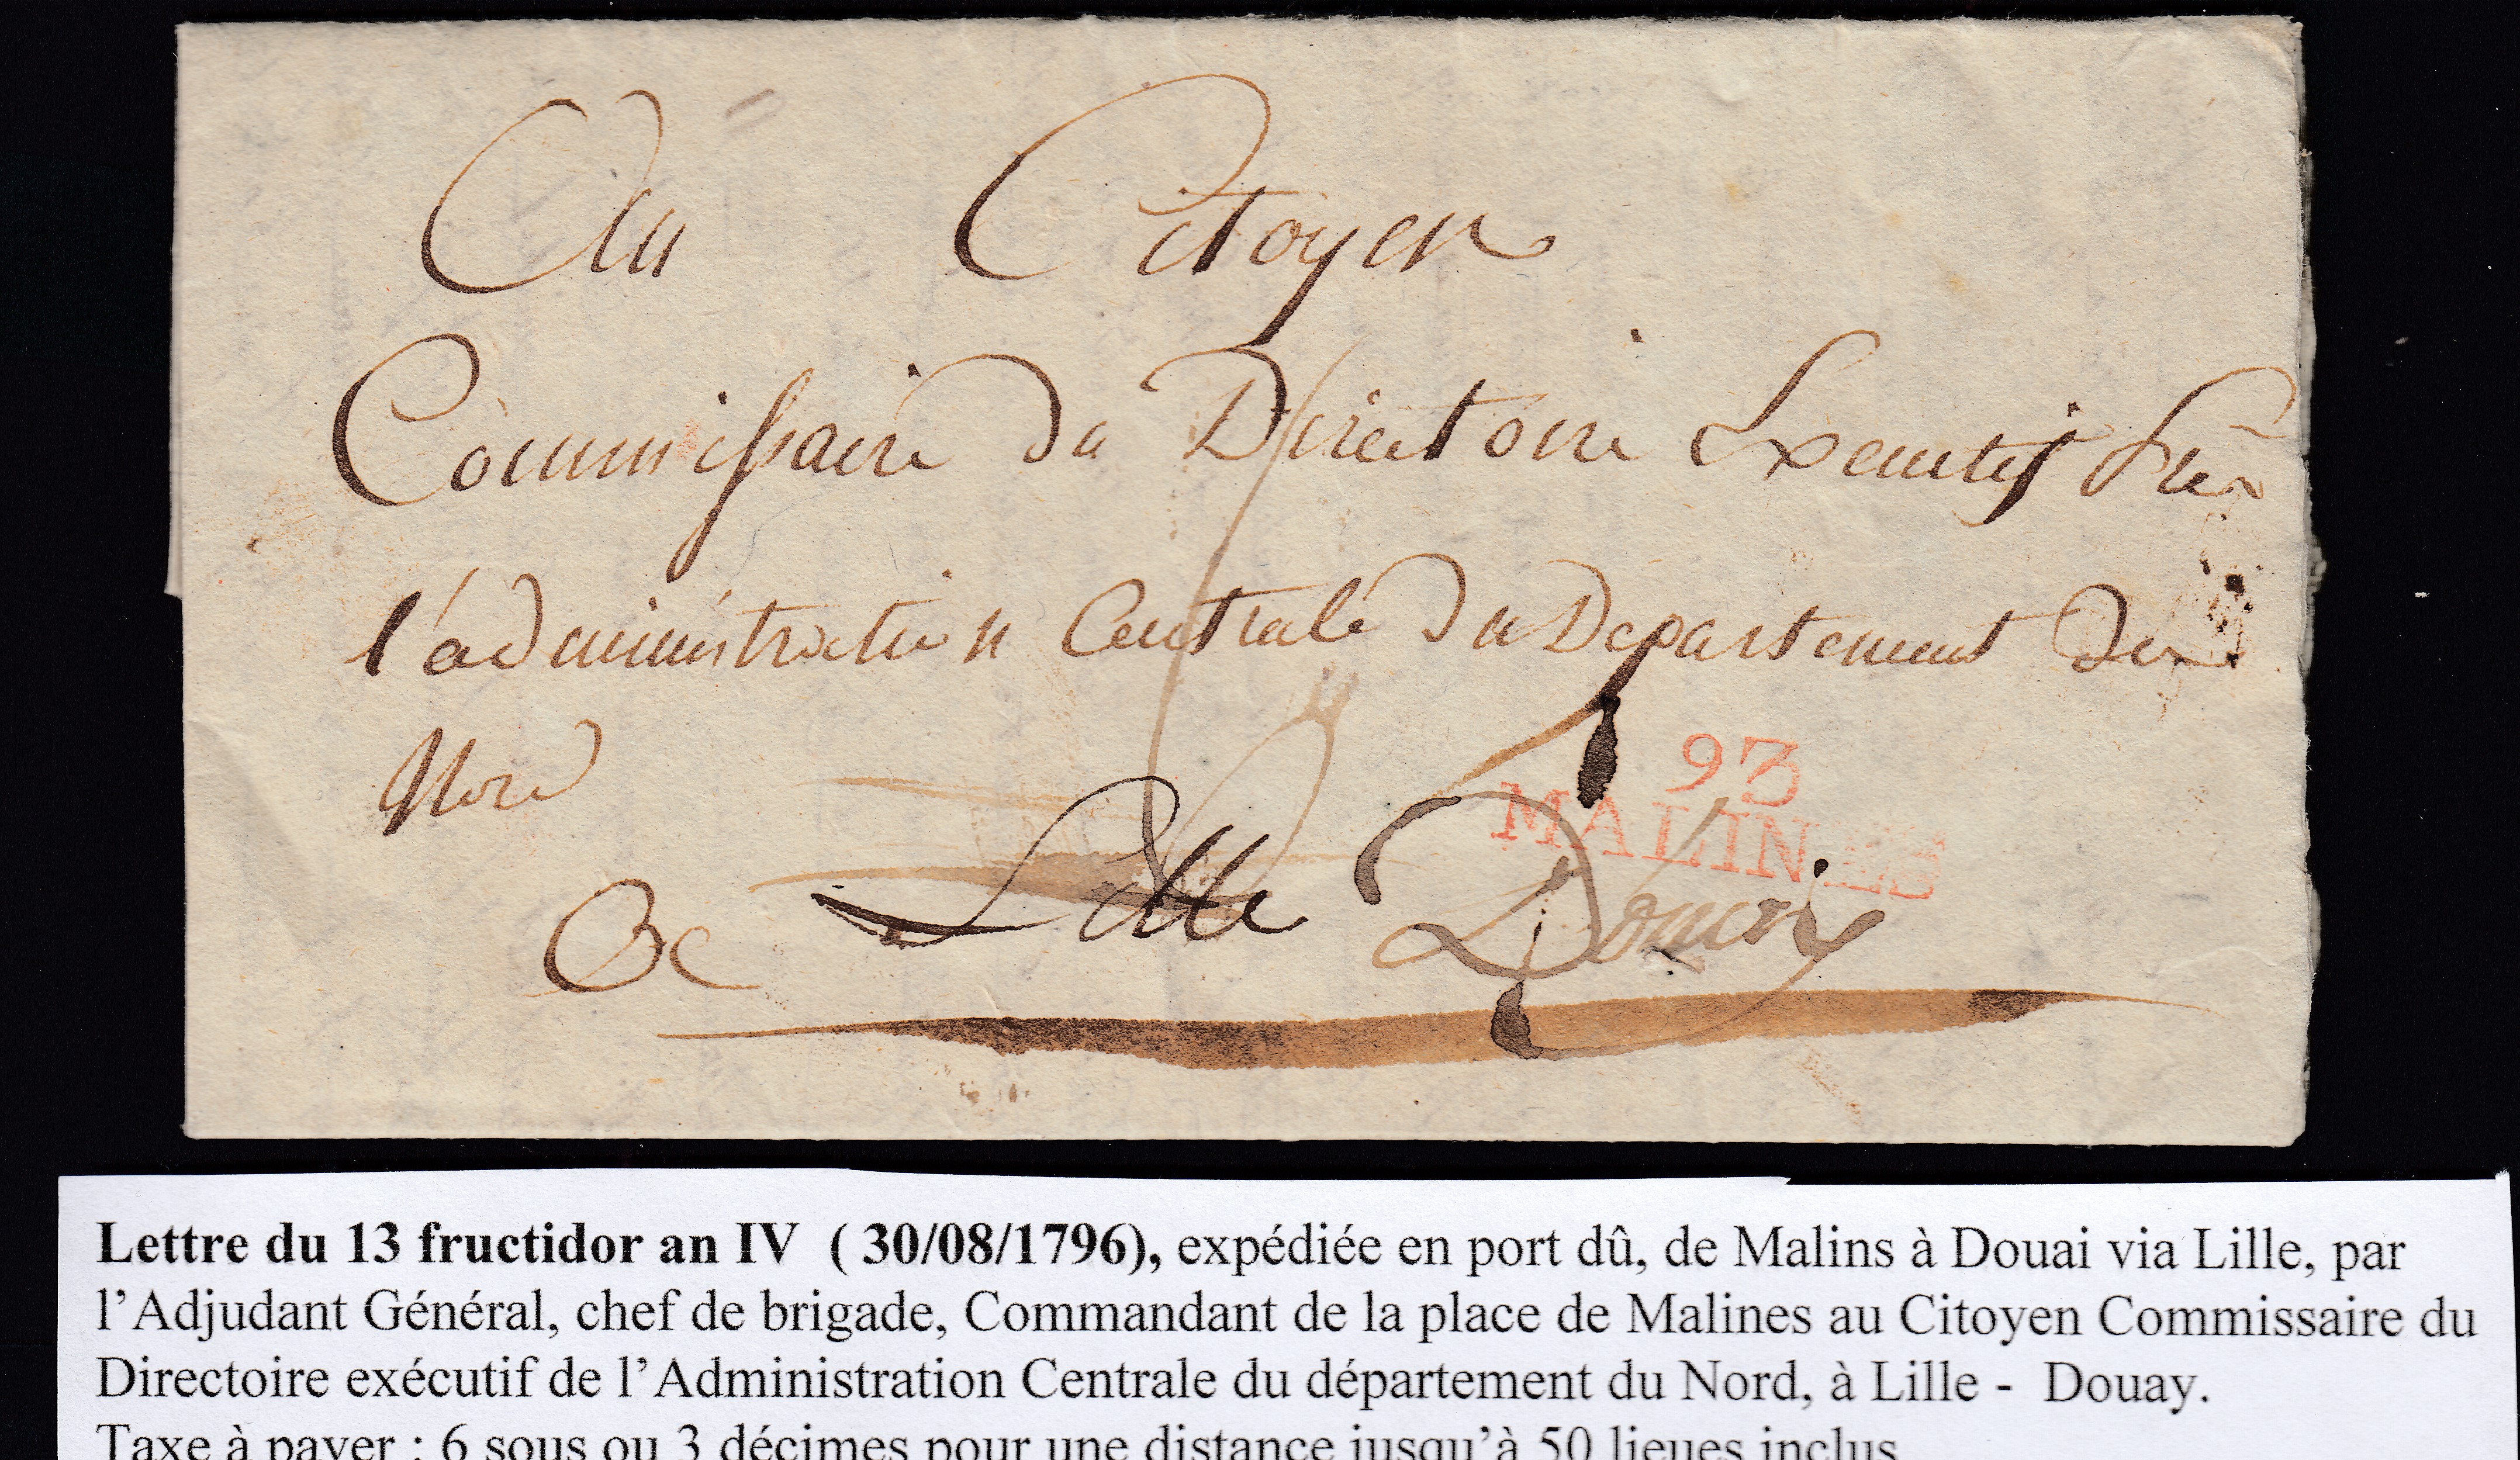 Au Citoyen
Commissaire du Directoire Executif près
l'administration Centrale du Departement du
Nord
93
MALINES
a Lille Douay
Lettre du 13 fructidor an IV ( 30/08/1796), expédiée en port dû, de Malins à Douai via Lille, par
l’Adjudant Général, chef de brigade, Commandant de la place de Malines au Citoyen Commissaire du
Directoire exécutif de l’Administration Centrale du département du Nord, à Lille - Douay.
Taxe à payer : 6 sous ou 3 décimes pour une distance jusqu’à 50 lieues inclus